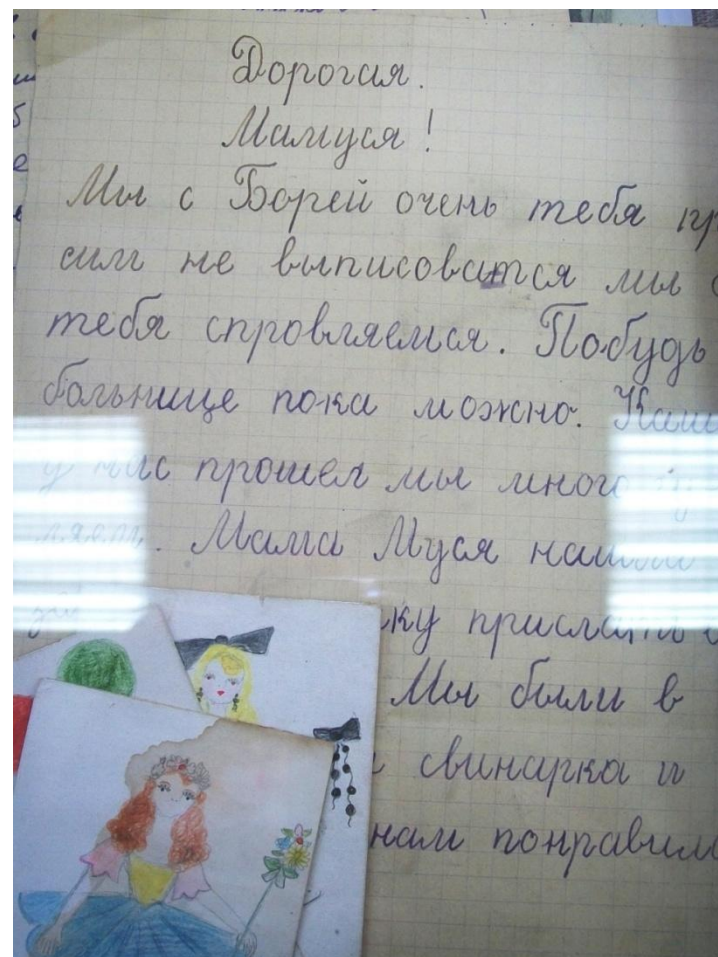 Дорогая.
Мамуся!
Мы с Борей очень тебя пр
сим не выписоватся мы
тебя спровляемся. Побудь
больнице пока можно. Каш
у нас прошел мы много
ляем. Мама Муся
ку прислать
Мы были в
свинарка и
нам понравил